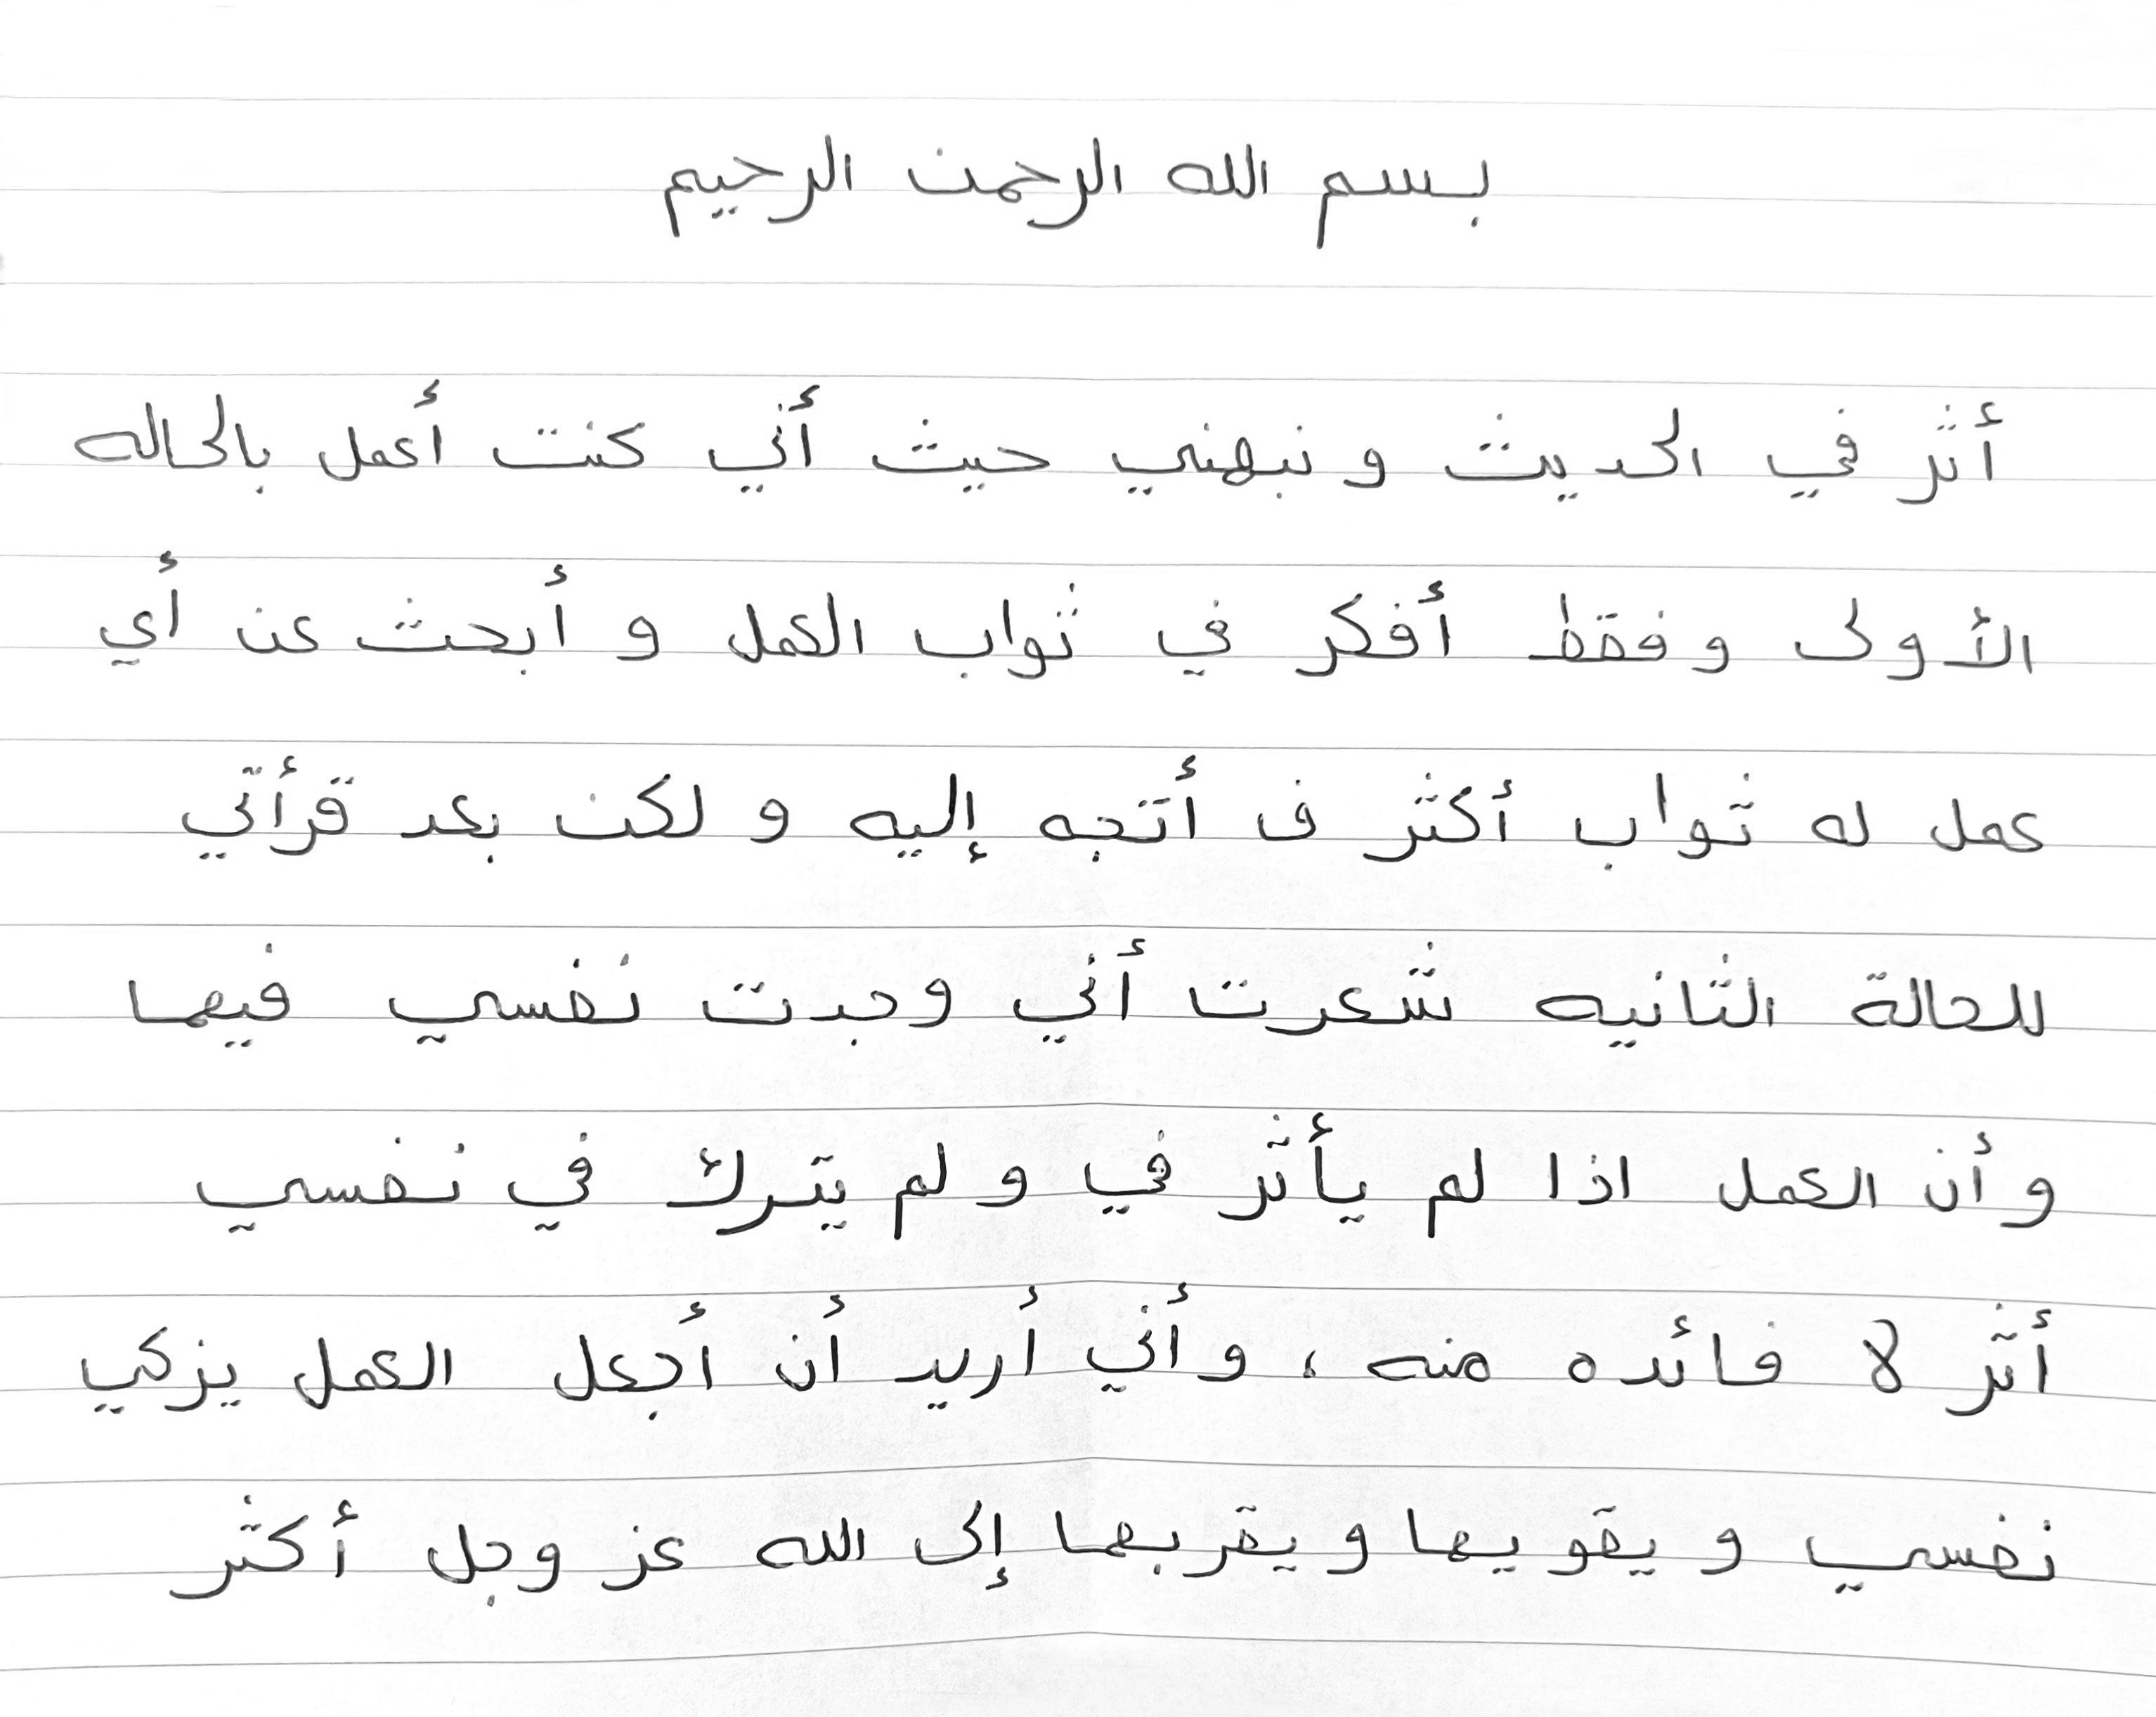 بسم الله الرحمن الرحيم
أثر في الحديث و نبهني حيث أني كنت أعمل بالحاله
الأولى و فقط أفكر في ثواب العمل و أبحث عن أي
عمل له ثواب أكثر ف أتجه إليه و لكن بعد قرأتي
للحالة الثانيه شعرت أني وجدت نفسي فيها
و أن العمل اذا لم يأثر في و لم يترك في نفسي
أثر لا فائده منه ، و أني أريد أن أجعل العمل يزكي
نفسي و يقويها و يقربها إلى الله عز وجل أكثر